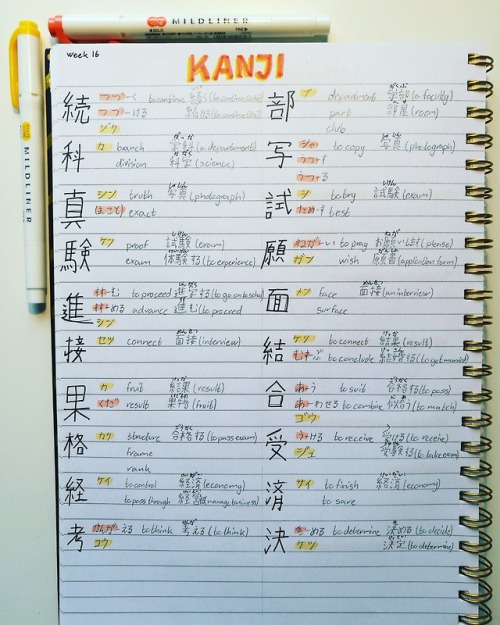 MILDLINER
MILDLINER
week 16
KANJI
続 つづーく to continue 続く (to continue)
つづーける 続ける
ゾク
科 カ branch 学科 (a department)
division 科学 (science)
真 シン truth 写真 (photograph)
まこと exact
験 ケン proof 試験 (exam)
exam 体験する (to experience)
進 すすーむ to proceed 進学する
すすーめる advance 進む (to proceed
シン
接 セツ connect 面接 (interview)
果 カ fruit 結果 (result)
くだ result 果物 (fruit)
格 カク structure 合格する (to pass exam)
frame
rank
経 ケイ to control 経済 (economy)
to pass through
考 かんがーえる to think 考える (to think)
コウ
部 ブ department 学部 (a faculty)
part 部屋 (room)
club
写 シャ to copy 写真 (photograph)
うつーす
うつーる
試 シ to try 試験 (exam)
ためーす test
願 ねがーい to pray お願いします (please)
ガン wish 願書 (application form)
面 メン face 面接 (an interview)
surface
結 ケツ to connect 結果 (result)
むすーぶ to conclude 結婚する (to get married)
合 あーう to suit 合格する (to pass)
あーわせる to combine (to match)
ゴウ
受 うーける to receive 受ける (to receive)
ジュ 受験する (to take exam)
済 サイ to finish 経済 (economy)
to save
決 きーめる to determine 決める (to decide)
ケツ 決定 (to determine)